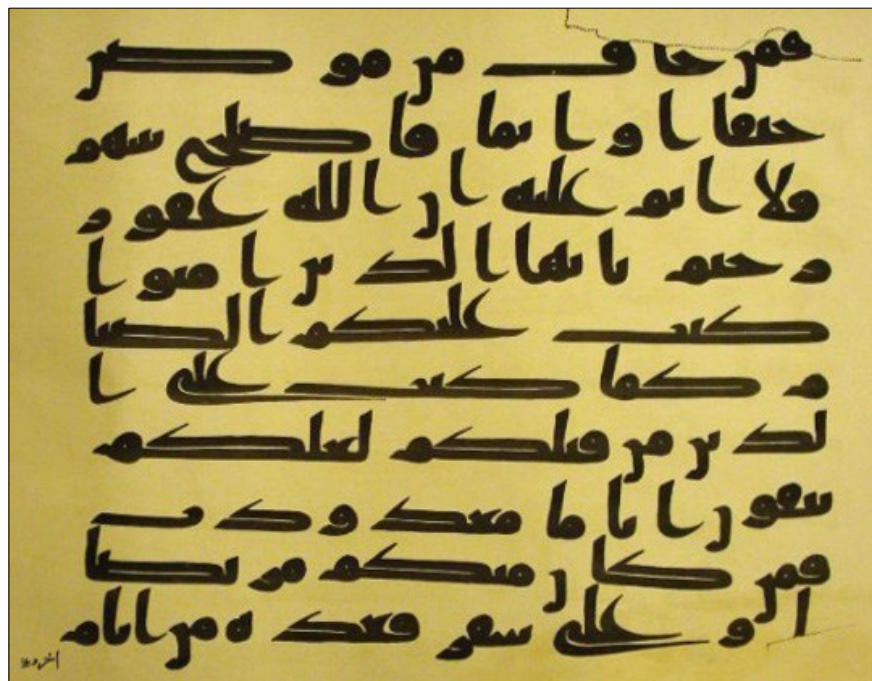 فمن خاف من موص
جنفا او اثما فاصلح بينهم
فلا اثم عليه ان الله غفور
رحيم يايها الذين امنوا
كتب عليكم الصيا
م كما كتب على ا
لذين من قبلكم لعلكم
تتقون اياما معدودت
فمن كان منكم مريضا
او على سفر فعدة من ايام